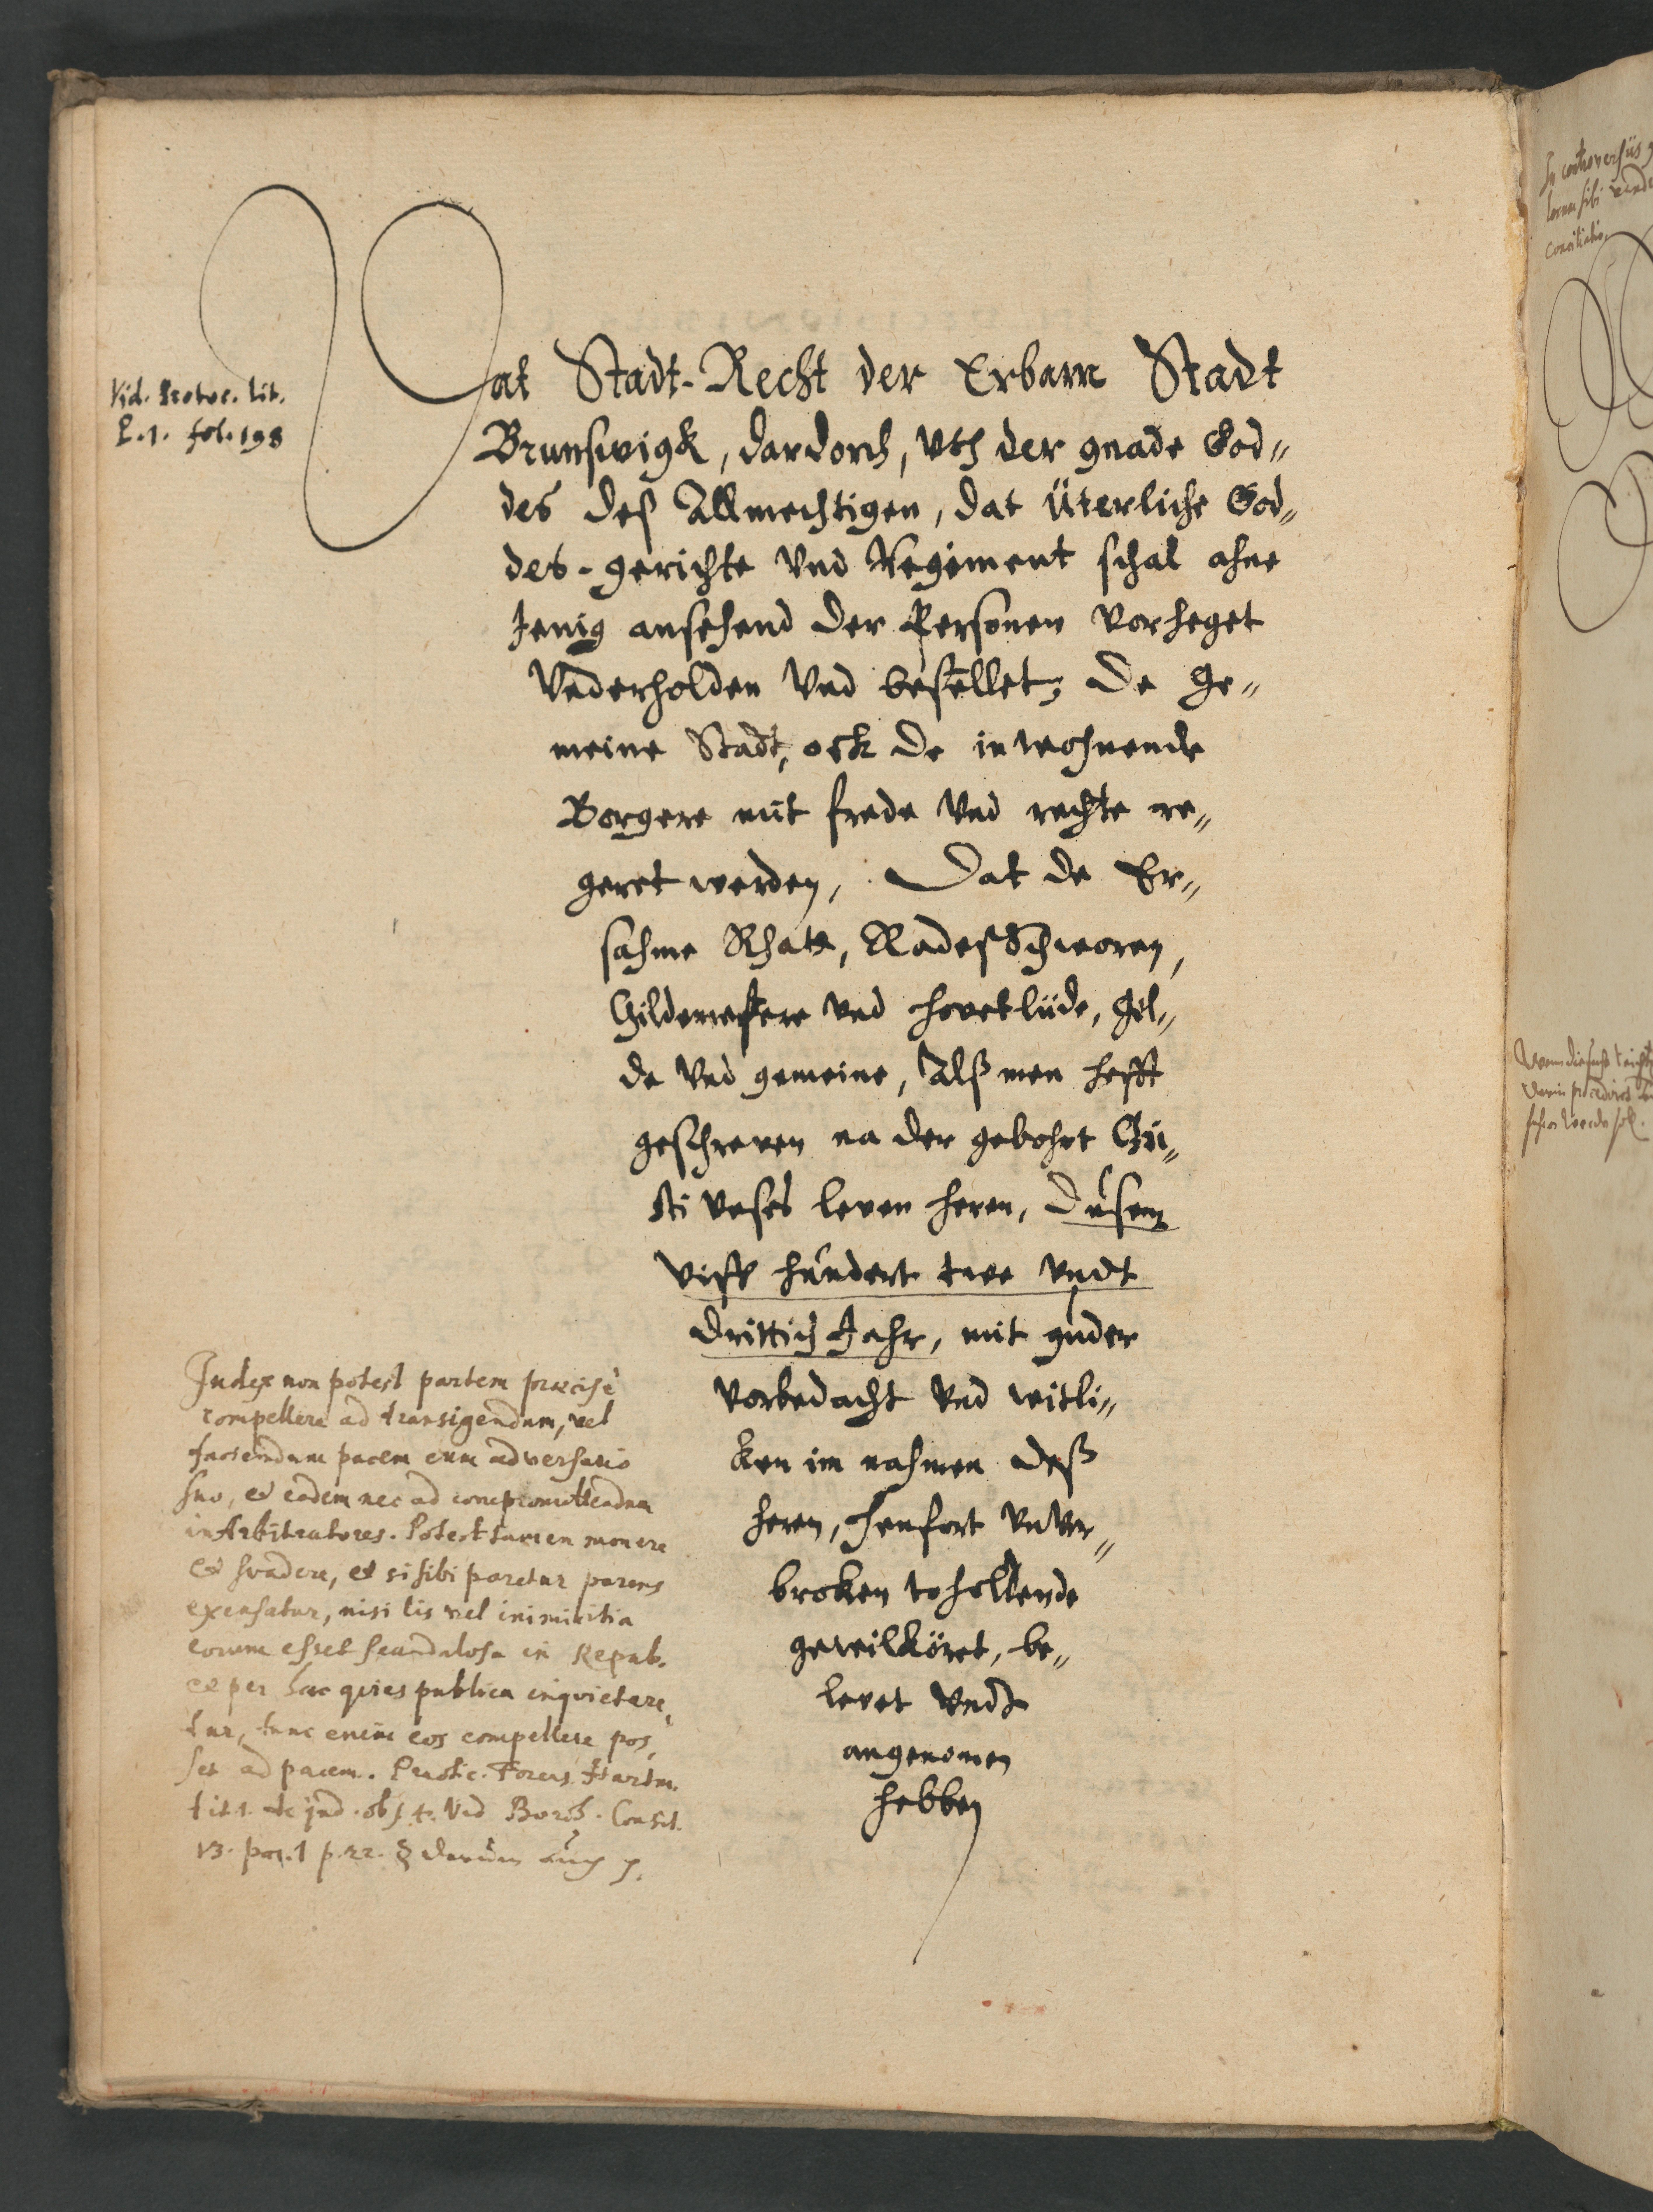 Vid. Protoc. lit.
P. 1. fol. 198
Dat Stadt-Recht der Erbarn Stadt
Brunswigk, dardorch, vth der gnade God„
des deß Allmechtigen, dat üterliche God„
des-gerichte vnd Regiment schal ahne
Jenig ansehend der Personen vorheget
vnderholden vnd bestellet, de ge„
meine Stadt, ock de inwohnende
Borgere mit frede vnd rechte re„
geret werden, Dat de Er„
sahme Rhatt, Radeßschworen,
Gildemestere vnd hovetlüde, gil„
de vnd gemeine, Alß men hefft
geschreven na der gebohrt Chri„
sti vnses leven heren, Dusent
viff hundert twe vndt
drittich Jahr, mit guder
vorbedacht vnd witli„
ken im nahmen deß
heren, henfort vnvor„
broken toholtende
gewilköret, be„
levet vndt
angenomen
hebben
Judex non potest partem praecisè
compellere ad transigendum, vel
faciendum pacem cum adversario
suo, et eadem nec ad compromittendum
in Arbitratores. Potest tamen monere
et suadere, et si sibi paretur parens
excusatur, nisi lis vel inimicitia
eorum esset scandalosa in Repub.
et per hac quies publica inquietare„
tur, tunc enim eos compellere pos„
set ad pacem. Practic. Forens.
tit. 1. de jud. obs. 4. Vid
13. par. 1 p. 22. § darumb auch
In controversiis
locum sibi
conciliatio.